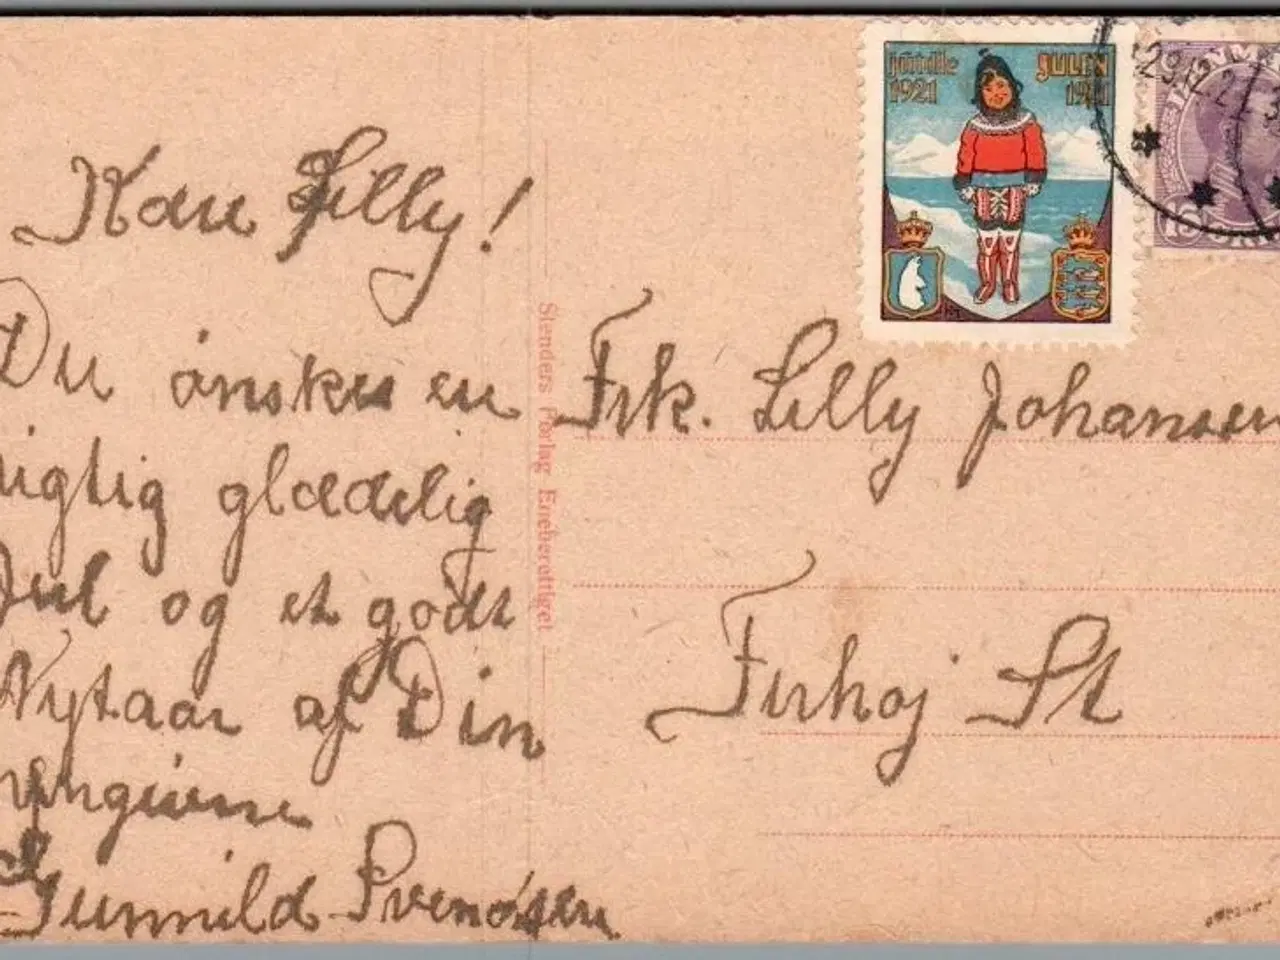 Kære Lilly!
Du ønskes en
rigtig glædelig
Jul og et godt
Nytaar af Din
hengivne
Gunnild Svendsen
Stenders Forlag Eneberettiget
Julen
1921
JULEN
1921
29.12.2
DANMARK
Frk. Lilly Johansen
Firhøj St